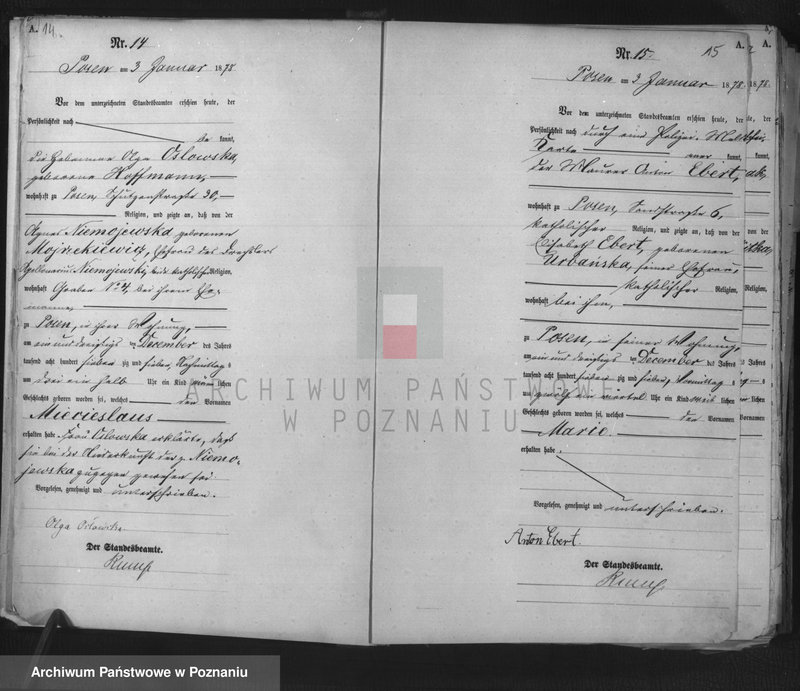 A. 14.
Nr. 14
Posen am 3 Januar 1878
Vor dem unterzeichneten Standesbeamten erschien heute, der
Persönlichkeit nach
be kannt,
die Hebamme Olga Osłowska,
geborene Hoffmann,
wohnhaft zu Posen, Schützenstraße 30,
Religion, und zeigte an, daß von der
Agnes Niemojewska geborenen
Ehefrau des Drechslers
Apollinarius Niemojewski, beide katholischer Religion,
wohnhaft Graben No 4, bei ihrem Ehe-
manne,
zu Posen, in ihrer Wohnung,
am ein und dreißigsten December des Jahres
tausend acht hundert sieben zig und sieben Nachmittag s
um drei ein halb Uhr ein Kind männ lichen
Geschlechts geboren worden sei, welches den Vornamen
Miecieslaus
erhalten habe. Frau Osłowska erklärte, daß
sie bei der Niederkunft der p. Niemo-
jewska zugegen gewesen sei.
Vorgelesen, genehmigt und unterschrieben.
Olga Osłowska
Der Standesbeamte.
15 A.
Nr. 15.
Posen am 3 Januar 1878.
Vor dem unterzeichneten Standesbeamten erschien heute, der
Persönlichkeit nach durch eine Polizei-Melde-
Karte aner kannt,
der Maurer Anton Ebert,
wohnhaft zu Posen, Sandstraße 6,
katholischer Religion, und zeigte an, daß von der
Elisabeth Ebert, geborenen
Urbańska, seiner Ehefrau,
katholischer Religion,
wohnhaft bei ihm,
zu Posen, in seiner Wohnung,
am ein und dreißigsten December des Jahres
tausend acht hundert sieben zig und sieben, Vormittag s
um zwölf ein viertel Uhr ein Kind weib lichen
Geschlechts geboren worden sei, welches den Vornamen
Marie
erhalten habe.
Vorgelesen, genehmigt und unterschrieben.
Anton Ebert.
Der Standesbeamte.
ARCHIWUM PAŃSTWOWE
W POZNANIU
Archiwum Państwowe w Poznaniu